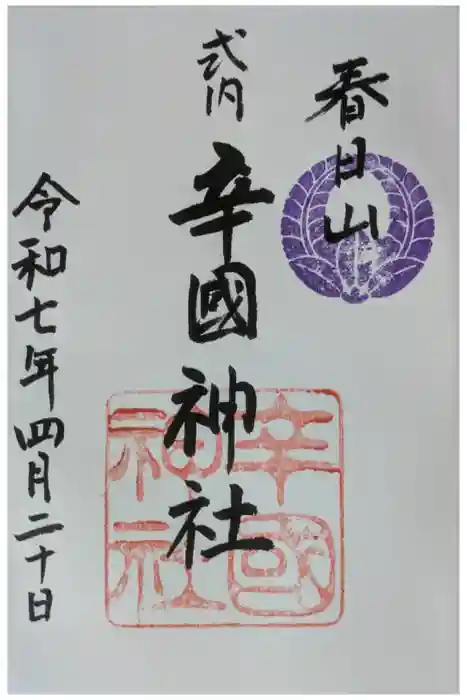 春日山
式内
辛國神社
令和七年四月二十日
辛國
神社